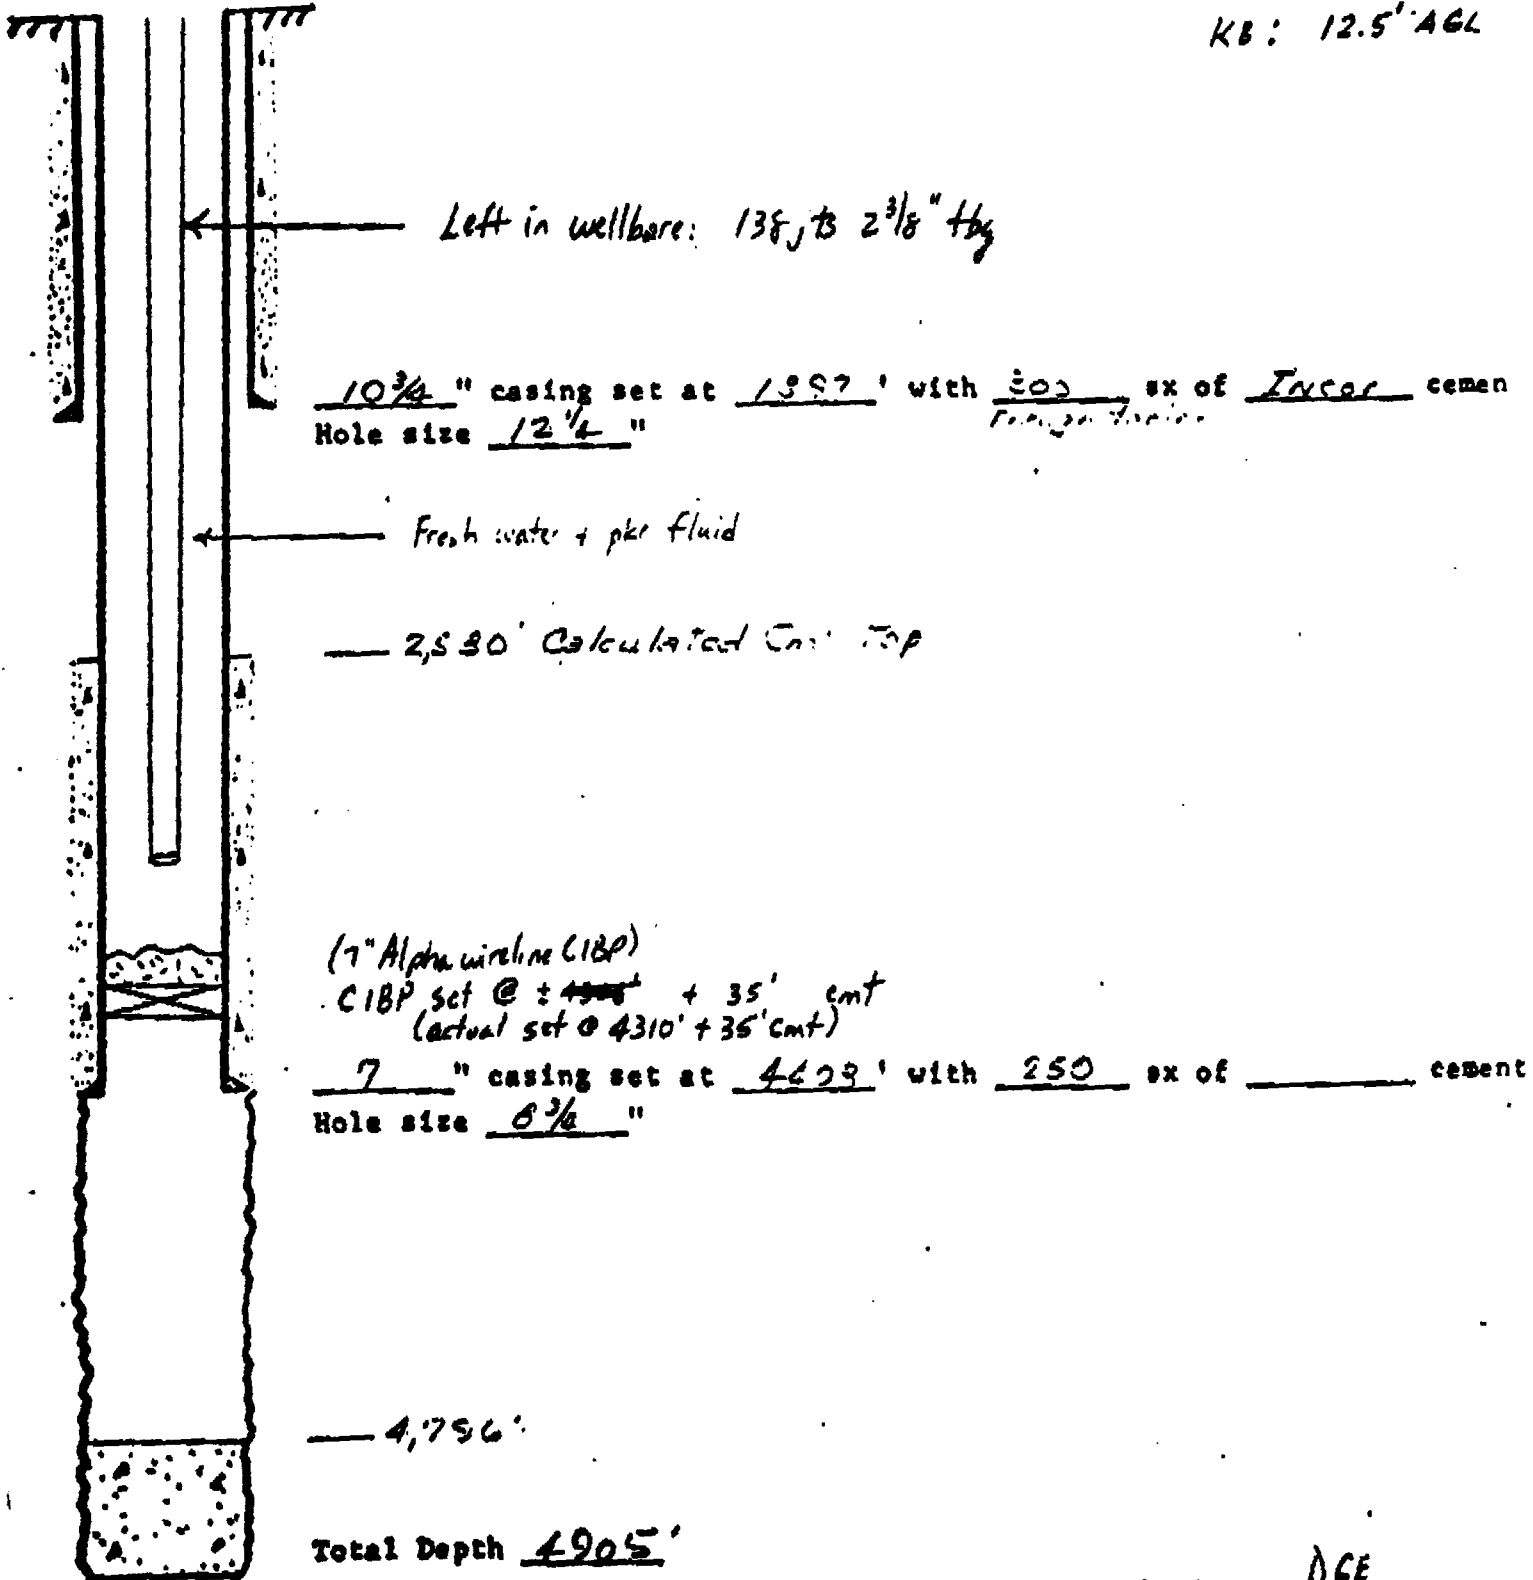 KB: 12.5' AGL
Left in wellbore: 138 jts 2 3/8" tbg
10 3/4 " casing set at ' with sx of Incor cemen
Hole size 12 1/4 "
Fresh water + pkr fluid
Calculated Cmt Top
(7" Alpha wireline CIBP)
CIBP set @ ± + 35' cmt
(actual set @ 4310' + 35' cmt)
7 " casing set at ' with 250 sx of cement
Hole size "
Total Depth 4905'
DGE